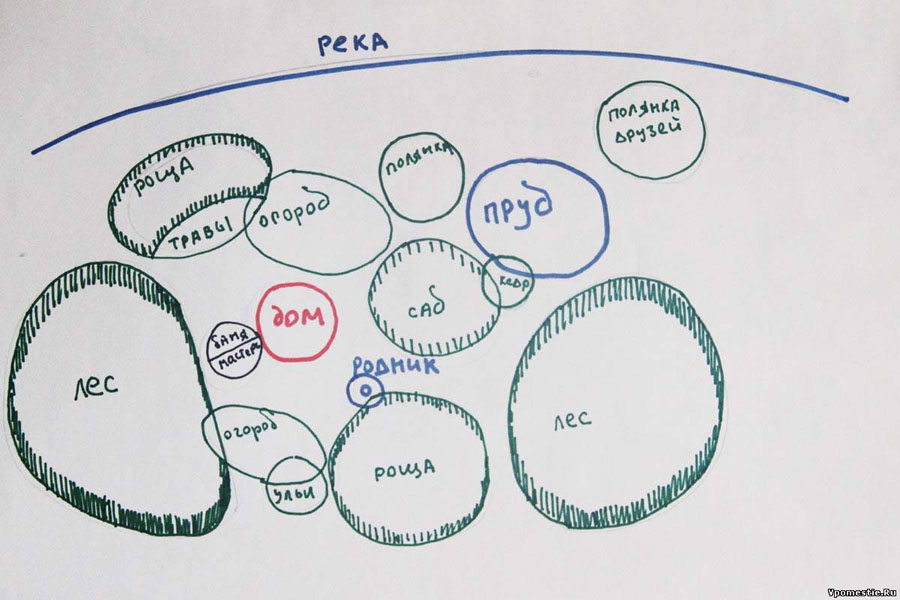 река
полянка
друзей
роща
полянка
огород
пруд
травы
кедр
сад
дом
баня
мастерс
родник
лес
лес
огород
роща
ульи
Vpomestie.Ru